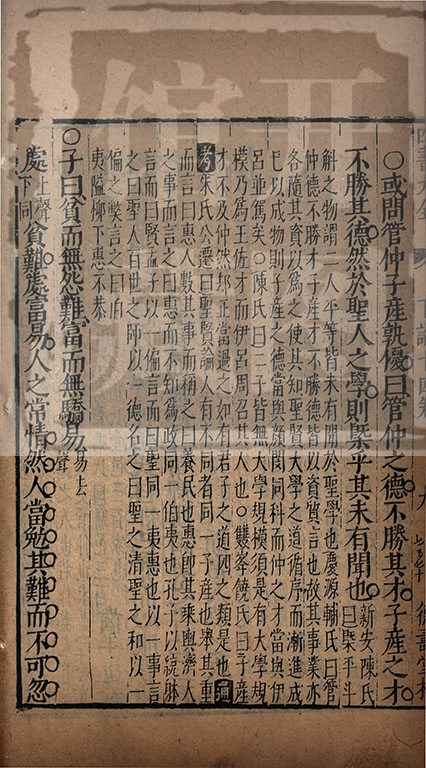 ○或問管仲子產孰優曰管仲之德不勝其才子產之才
不勝其德然於聖人之學則槩乎其未有聞也
新安陳氏
曰槩平斗
斛之物謂二人平等皆未有聞於聖學也慶源輔氏曰管
仲德不勝才子產才不勝德皆以資質言也故其事業亦
各隨其資以爲之使其知聖賢大學之道循序而漸進成
已以成物則子產之德當與顏閔同科而仲之才當與伊
呂並駕矣○陳氏曰二子皆無大學規模須是有大學規
模乃爲王佐才而伊呂周召其人也○雙峯饒氏曰子產
才不及仲然却正當過之如有君子之道四之類是也通
考朱氏公遷曰聖賢論人有不同者同一子產也舉其重
而言曰惠人數其事而稱之曰養民也惠即其乘輿濟人
之事而言之曰惠而不知爲政同一伯夷也孔子以統體
言而曰賢孟子以一偏言而曰聖同一夷惠也以一事言
之曰聖人百世之師以一德名之曰聖之清聖之和以一
偏之弊言之曰伯
夷隘柳下惠不恭
○子曰貧而無怨難富而無驕易
易去
聲
處上聲下同貧難處富易人之常情然人當勉其難而不可忽